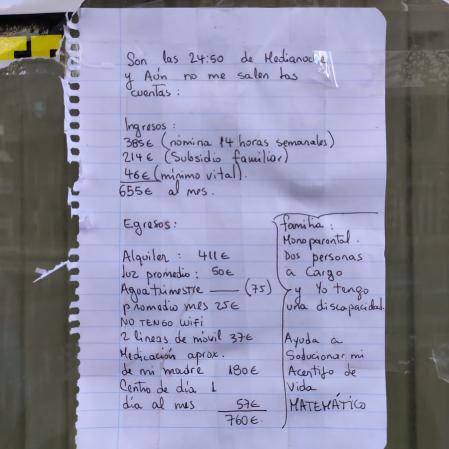 Son las 24:50 de Medianoche
y Aún no me salen las
cuentas :
Ingresos :
385€ (nómina 14 horas semanales)
214€ (Subsidio familiar)
46€ (mínimo vital).
655€ al mes.
Egresos :
Alquiler : 411€
luz promedio : 50€
Agua trimestre —— (75)
promedio mes 25€
NO TENGO WiFi
2 lineas de móvil 37€
Medicación aprox.
de mi madre 180€
Centro de día 1
día al mes 57€
760€.
familia :
Monoparental.
Dos personas
a Cargo
y Yo tengo
una discapacidad.
Ayuda a
Solucionar mi
Acertijo de
Vida
MATEMÁTICO